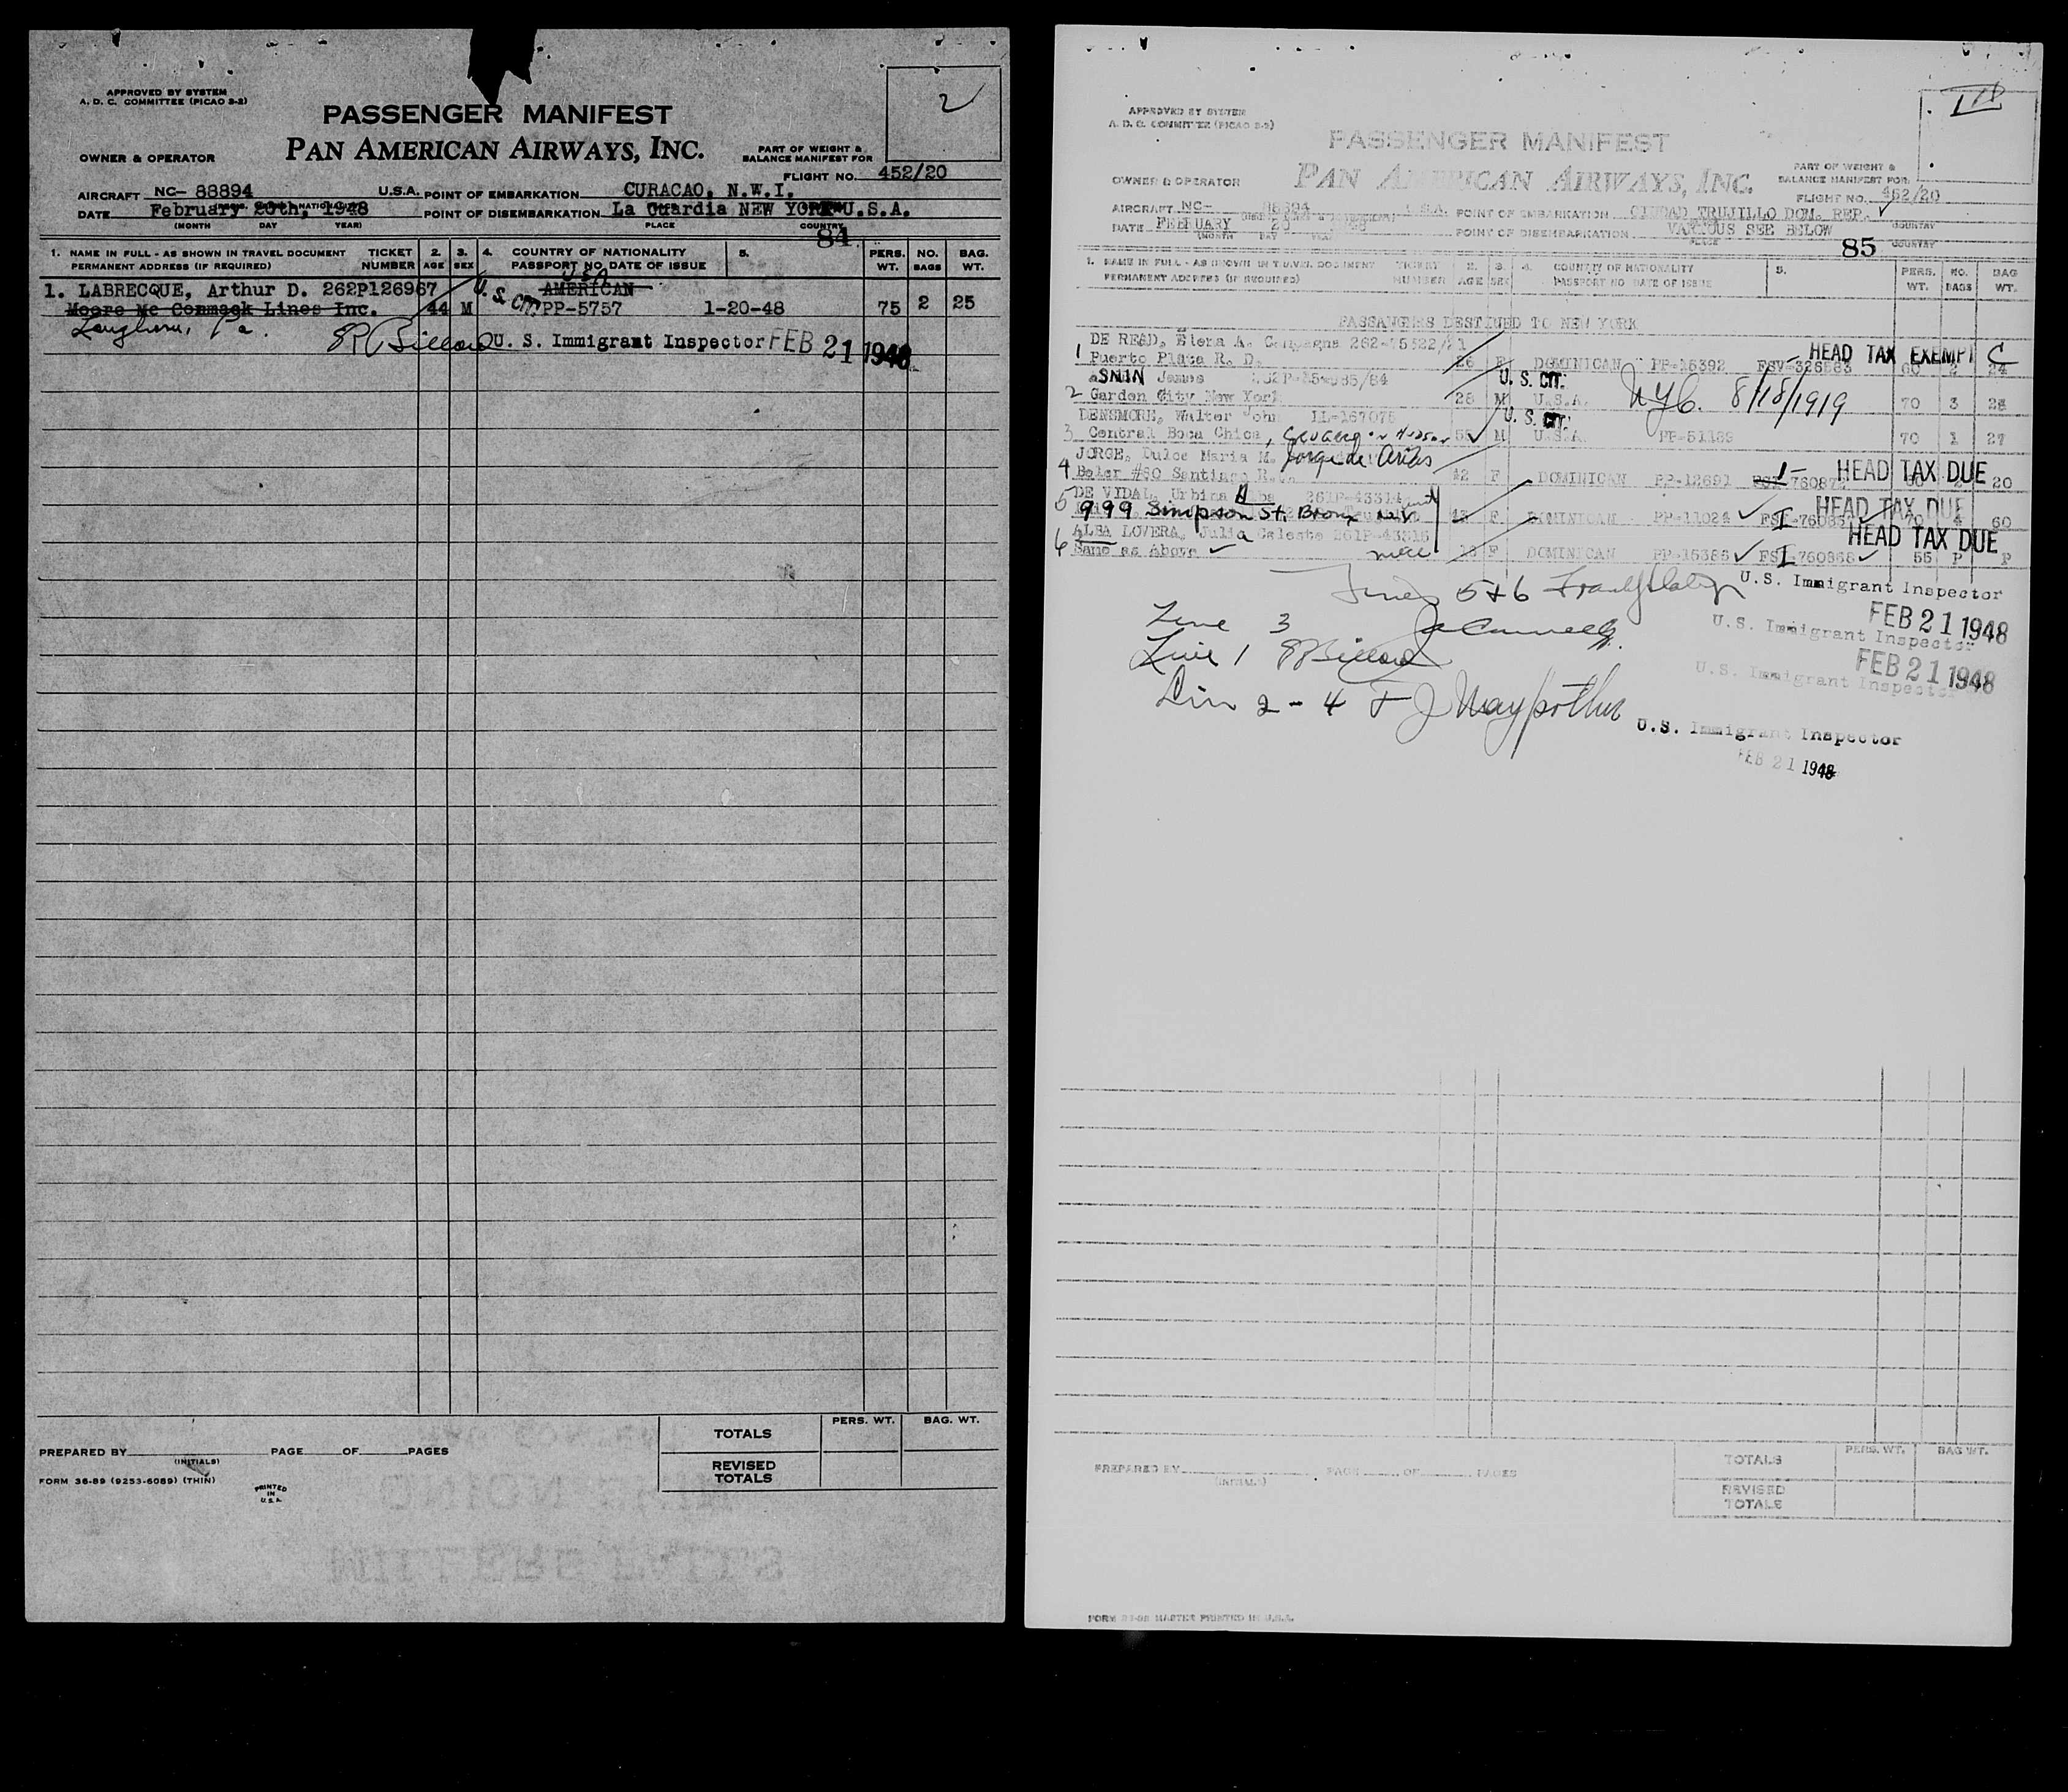 APPROVED BY SYSTEM
A. D. C. COMMITTEE (PICAO 2-2)
2
PASSENGER MANIFEST
PAN AMERICAN AIRWAYS, INC.
OWNER & OPERATOR
PART OF WEIGHT &
BALANCE MANIFEST FOR
FLIGHT NO. 452/20
AIRCRAFT NC- 88894 U.S.A. POINT OF EMBARKATION CURACAO, N.W.I.
DATE February 20th, 1948 POINT OF DISEMBARKATION La Guardia NEW YORK U.S.A.
(MONTH DAY YEAR) PLACE COUNTRY
84
1. NAME IN FULL - AS SHOWN IN TRAVEL DOCUMENT TICKET 2. 3. 4. COUNTRY OF NATIONALITY 5. PERS. NO. BAG.
PERMANENT ADDRESS (IF REQUIRED) NUMBER AGE SEX PASSPORT NO. DATE OF ISSUE WT. BAGS WT.
USA
1. LABRECQUE, Arthur D. 262P126967 U.S. CIT. AMERICAN
Moore Mc Commack Lines Inc. 44 M PP-5757 1-20-48 75 2 25
Langhorn, Pa.
U. S. Immigrant Inspector FEB 21 1948
TOTALS PERS. WT. BAG. WT.
PREPARED BY PAGE OF PAGES
(INITIALS)
REVISED
TOTALS
FORM 36-89 (9253-6089) (THIN)
PRINTED
IN
U.S.A.
APPROVED BY SYSTEM
A. D. C. COMMITTEE (PICAO 2-2)
PASSENGER MANIFEST
PAN AMERICAN AIRWAYS, INC.
OWNER & OPERATOR
PART OF WEIGHT &
BALANCE MANIFEST FOR
FLIGHT NO. 452/20
AIRCRAFT NC- 88894 U.S.A. POINT OF EMBARKATION CIUDAD TRUJILLO DOM. REP.
DATE FEBRUARY 20 1948 POINT OF DISEMBARKATION VARIOUS SEE BELOW
(MONTH DAY YEAR PLACE COUNTRY
85
1. NAME IN FULL - AS SHOWN IN TRAVEL DOCUMENT TICKET 2. 3. 4. COUNTRY OF NATIONALITY 5. PERS. NO. BAG
PERMANENT ADDRESS (IF REQUIRED) NUMBER AGE SEX PASSPORT NO DATE OF ISSUE WT. BAGS WT.
PASSANGERS DESTINED TO NEW YORK
DE READ, Elena A.
HEAD TAX EXEMPT C
1 Puerto Plata R. D. 26 F DOMINICAN PP-15392 60 2 24
James U. S. CIT.
2 Garden City New York 28 M U.S.A. NYC. 8/18/1919 70 3 28
DENSMORE, Walter John LL-167078 U. S. CIT.
3 Central Boca Chica, M U.S.A. PP-51189 70 1 27
JORGE, Dulce Maria M. Jorge de Arias
4 Beler #80 Santiago R.D. 42 F DOMINICAN PP-12691 HEAD TAX DUE 20
5 DE VIDAL, Urbina Alba 261P-43314
999 Simpson St. Bronx N.Y. 43 F DOMINICAN PP-11024 HEAD TAX DUE 70 4 60
ALBA LOVERA, Julia Celeste 261P-43315 HEAD TAX DUE
6 Same as Above niece 18 F DOMINICAN PP-15385 FSI-760868 55 P P
Lines 5+6 U.S. Immigrant Inspector
FEB 21 1948
Line 3 U.S. Immigrant Inspector
FEB 21 1948
Line 1 U.S. Immigrant Inspector
Lin 2 - 4
U.S. Immigrant Inspector
FEB 21 1948
TOTALS PERS. WT. BAG WT.
PREPARED BY PAGE OF PAGES
(INITIALS)
REVISED
TOTALS
MASTER PRINTED IN U.S.A.